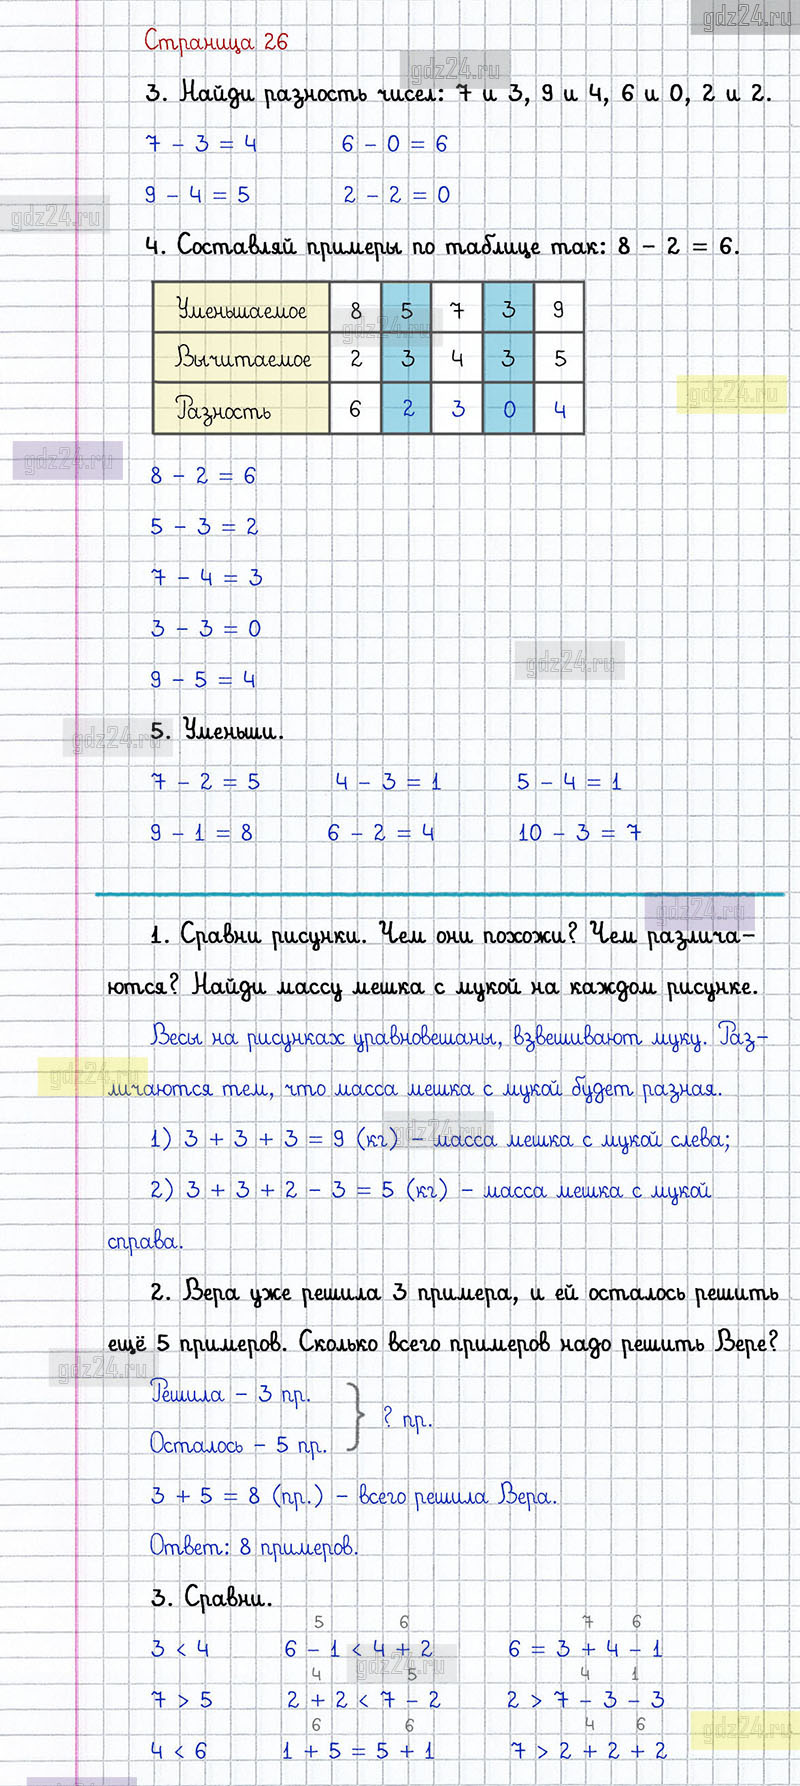 gdz24.ru
Страница 26
gdz24.ru
3. Найди разность чисел: 7 и 3, 9 и 4, 6 и 0, 2 и 2.
7 - 3 = 4 6 - 0 = 6
9 - 4 = 5 2 - 2 = 0
gdz24.ru
4. Составляй примеры по таблице так: 8 - 2 = 6.
Уменьшаемое 8 5 7 3 9
gdz24.ru
Вычитаемое 2 3 4 3 5
gdz24.ru
Разность 6 2 3 0 4
gdz24.ru
8 - 2 = 6
5 - 3 = 2
7 - 4 = 3
3 - 3 = 0
gdz24.ru
9 - 5 = 4
gdz24.ru
5. Уменьши.
7 - 2 = 5 4 - 3 = 1 5 - 4 = 1
9 - 1 = 8 6 - 2 = 4 10 - 3 = 7
gdz24.ru
1. Сравни рисунки. Чем они похожи? Чем различа-
ются? Найди массу мешка с мукой на каждом рисунке.
Весы на рисунках уравновешаны, взвешивают муку. Раз-
gdz24.ru
личаются тем, что масса мешка с мукой будет разная.
gdz24.ru
1) 3 + 3 + 3 = 9 (кг) - масса мешка с мукой слева;
2) 3 + 3 + 2 - 3 = 5 (кг) - масса мешка с мукой
справа.
2. Вера уже решила 3 примера, и ей осталось решить
ещё 5 примеров. Сколько всего примеров надо решить Вере?
gdz24.ru
Решила - 3 пр.
? пр.
Осталось - 5 пр.
3 + 5 = 8 (пр.) - всего решила Вера.
Ответ: 8 примеров.
3. Сравни.
5 6 7 6
3 < 4 6 - 1 < 4 + 2 6 = 3 + 4 - 1
gdz24.ru
4 5 4 1
7 > 5 2 + 2 < 7 - 2 2 > 7 - 3 - 3
gdz24.ru
6 6 4 6
4 < 6 1 + 5 = 5 + 1 7 > 2 + 2 + 2
gdz24.ru